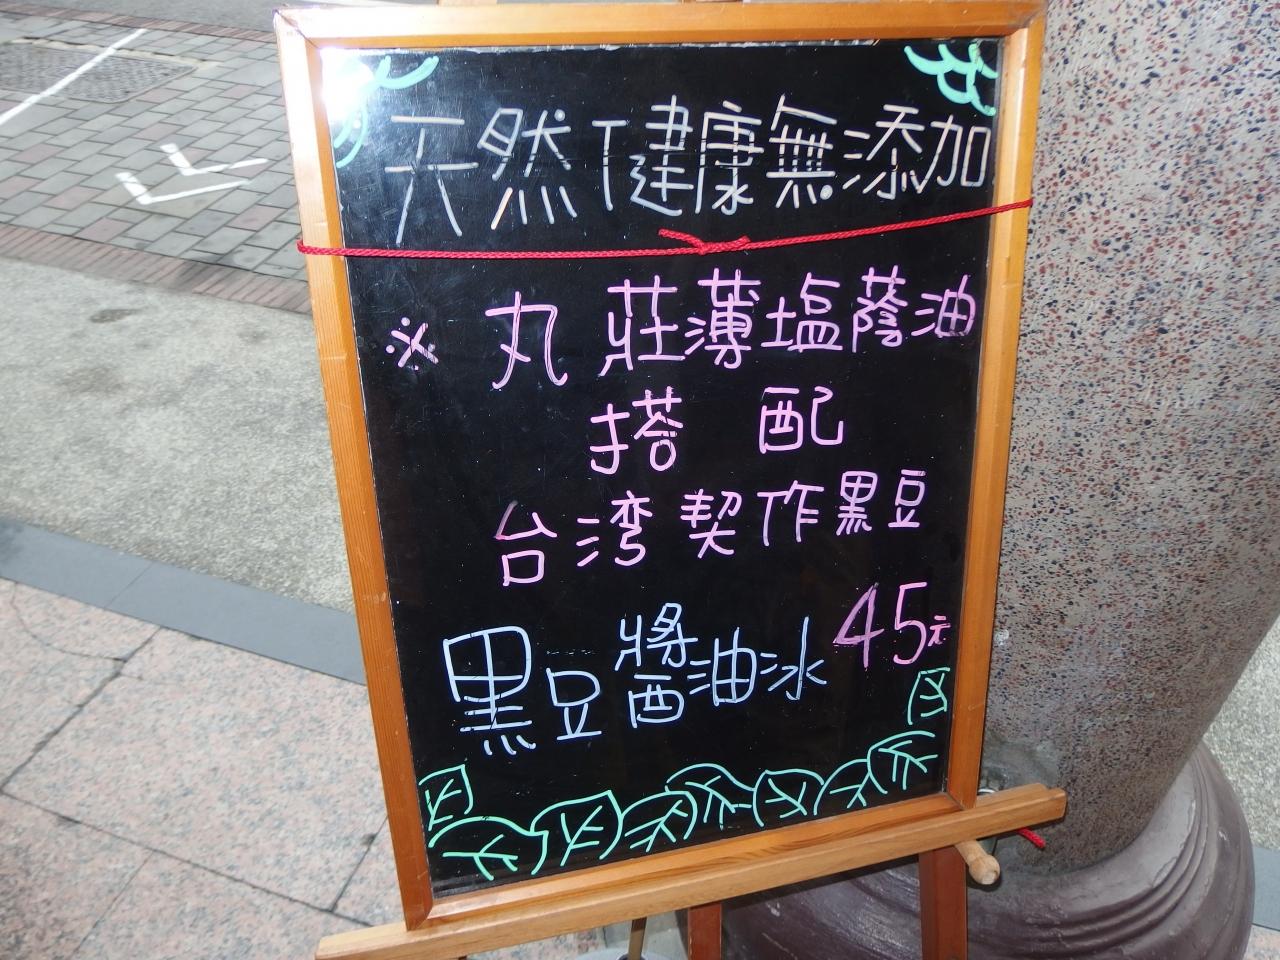 天然健康無添加
※丸莊薄塩蔭油
搭配
台湾契作黒豆
黒豆醬油冰 45元